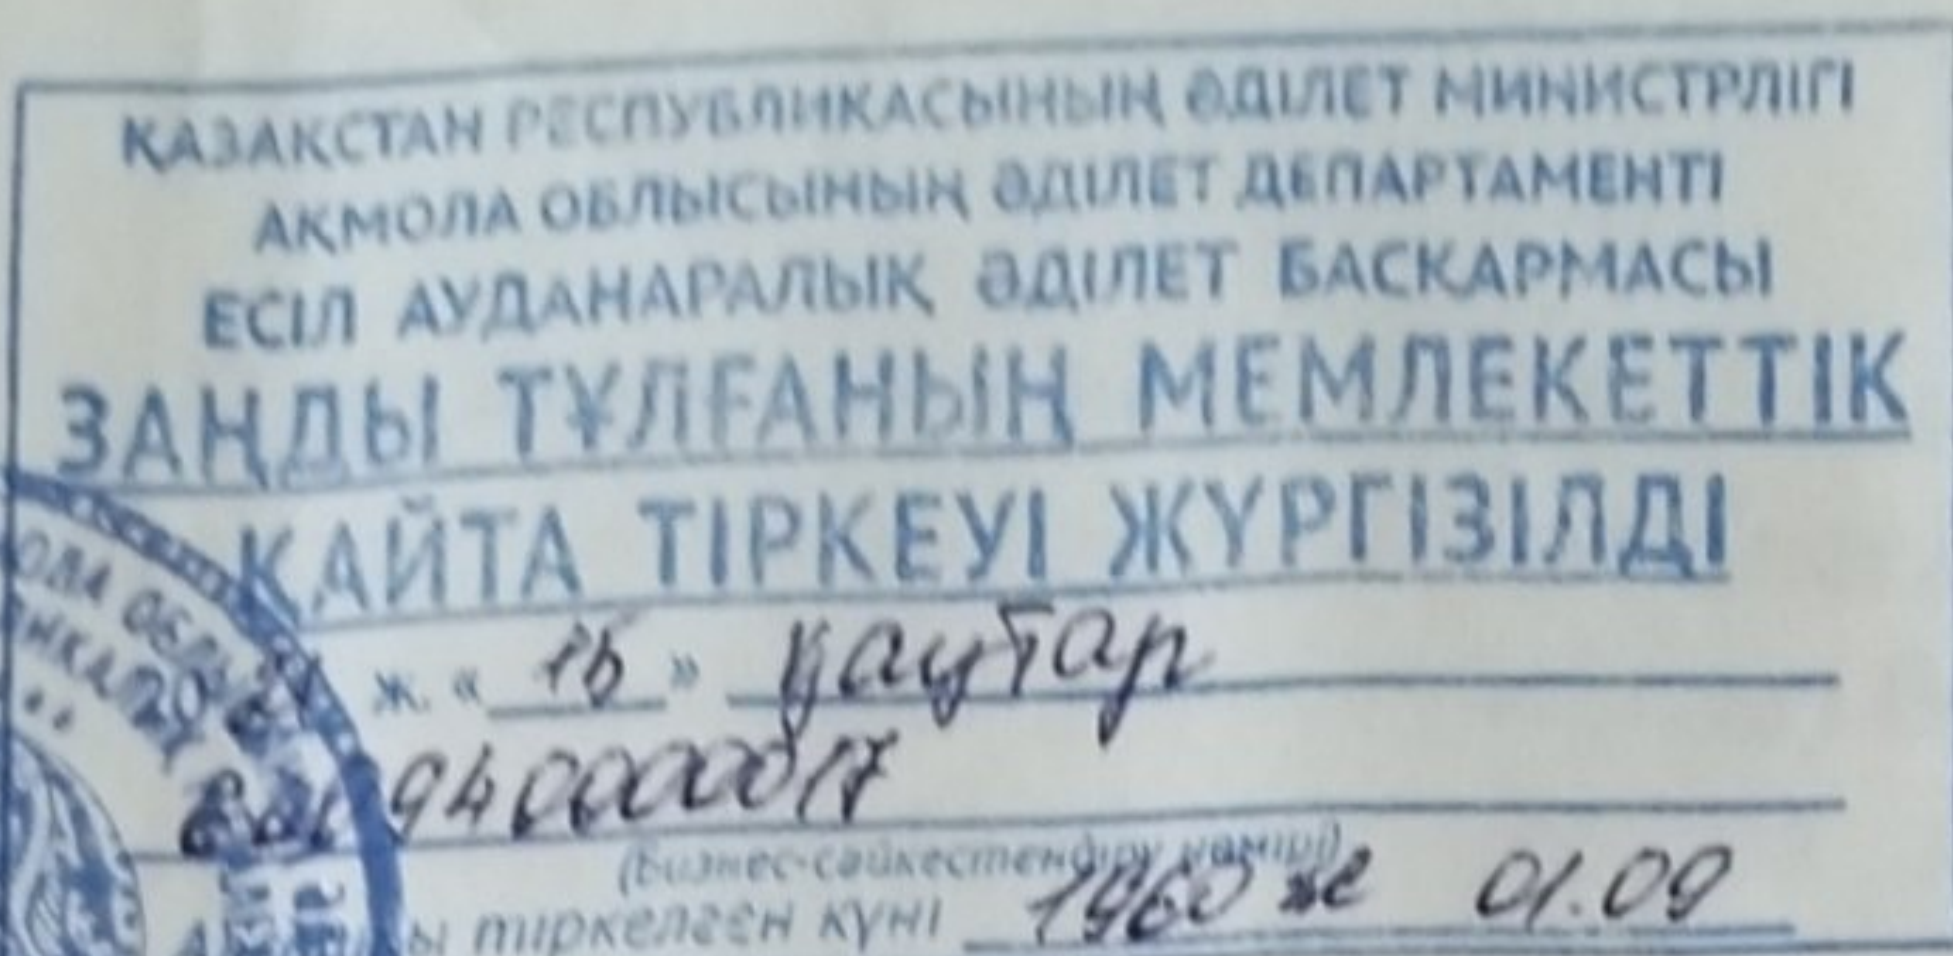 ҚАЗАҚСТАН РЕСПУБЛИКАСЫНЫҢ ӘДІЛЕТ МИНИСТРЛІГІ
АҚМОЛА ОБЛЫСЫНЫҢ ӘДІЛЕТ ДЕПАРТАМЕНТІ
ЕСІЛ АУДАНАРАЛЫҚ ӘДІЛЕТ БАСҚАРМАСЫ
ЗАҢДЫ ТҰЛҒАНЫҢ МЕМЛЕКЕТТІК
ҚАЙТА ТІРКЕУІ ЖҮРГІЗІЛДІ
ж. « 16 » қаңтар
940000017
(Бизнес-сәйкестендіру нөмірі)
тіркелген күні 1960 ж 01.09